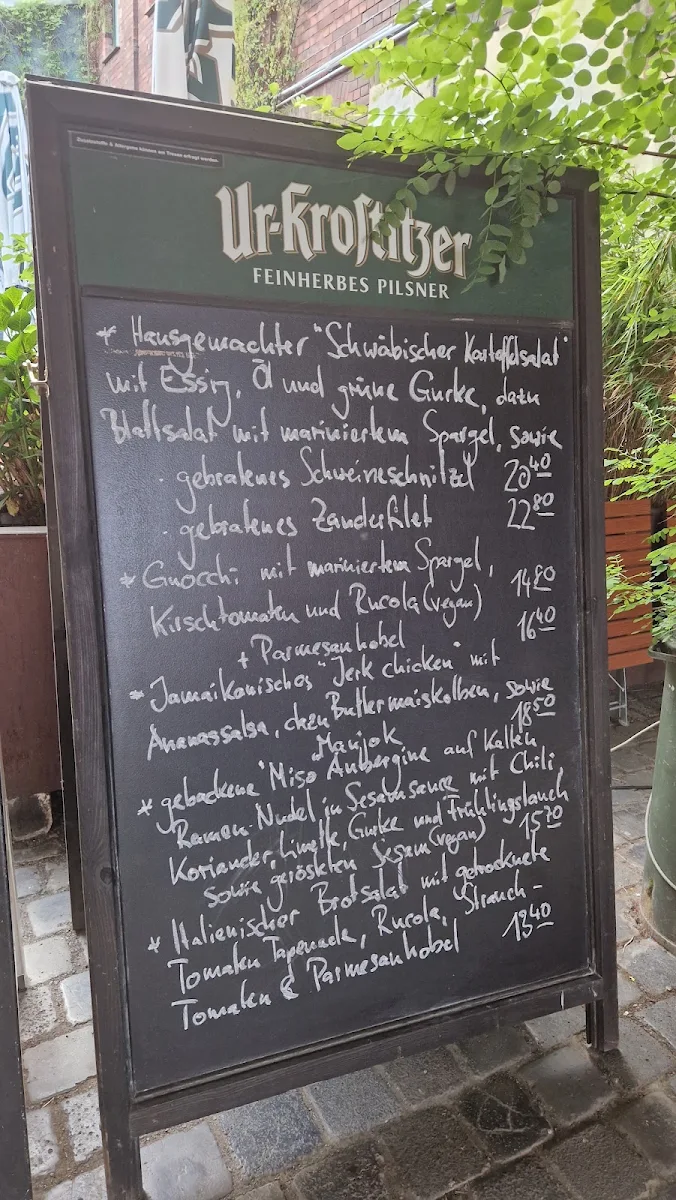 Zusatzstoffe & Allergene können am Tresen erfragt werden
Ur-Krostitzer
FEINHERBES PILSNER
* Hausgemachter "Schwäbischer Kartoffelsalat"
mit Essig, Öl und grüne Gurke, dazu
Blattsalat mit mariniertem Spargel, sowie
· gebratenes Schweineschnitzel 20 40
· gebratenes Zanderfilet 22 80
* Gnocchi mit mariniertem Spargel,
Kirschtomaten und Rucola (vegan) 14 80
+ Parmesanhobel 16 40
* Jamaikanisches "Jerk chicken" mit
Ananassalsa, dazu Buttermaiskolben, sowie
Maniok 18 50
* gebackene "Miso" Aubergine auf Kalten
Ramen-Nudel in Sesamsauce mit Chili
Koriander, Limette, Gurke und Frühlingslauch
sowie gerösteten Sesam (vegan) 15 70
* Italienischer Brotsalat mit getrocknete
Tomaten Tapenade, Rucola, Strauch-
Tomaten & Parmesanhobel 13 40